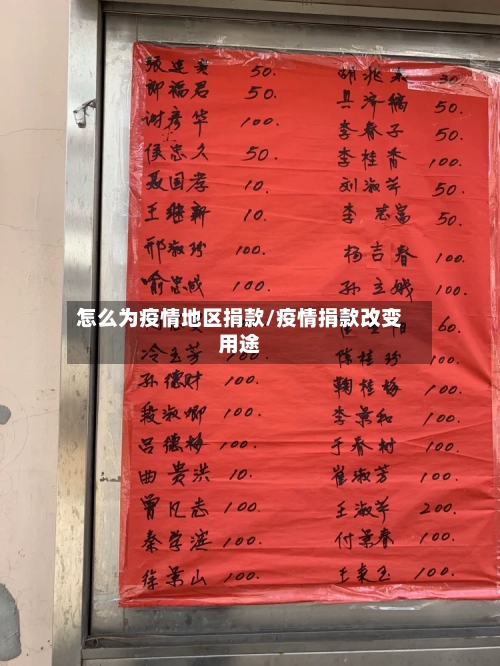 张建美 50. 胡兆来 30.
即福君 50. 吴济镐 50.
谢彦华 100. 李春子 50.
侯忠久 50. 李桂香 100.
聂国孝 10. 刘淑芹 50.
王继新 10. 李志富 50.
邢淑珍 100. 杨吉春 100.
喻忠成 100. 孙立娥 100.
60.
怎么为疫情地区捐款/疫情捐款改变
用途
冷玉芳 100. 陈桂珍 100.
孙德财 100. 鞠桂梅 100.
段淑卿 100. 李景和 100.
吕德梅 100. 于春树 100.
曲贵洪 10. 崔淑芳 100.
曾凡志 100. 王淑芹 200.
秦学滨 100. 付景春 100.
徐景山 100. 王东玉 100.